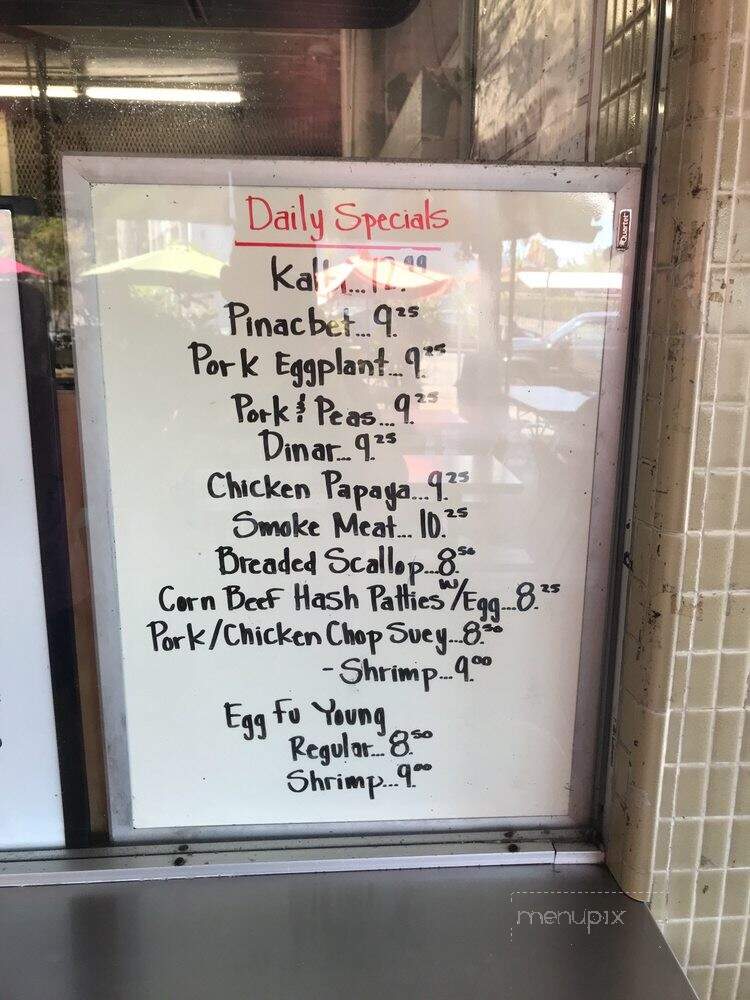 Daily Specials
Quartet
Pinacbet... 9.25
Pork Eggplant... 9.25
Pork & Peas... 9.25
Dinar... 9.25
Chicken Papaya... 9.25
Smoke Meat... 10.25
Breaded Scallop... 8.50
Corn Beef Hash Patties w/Egg... 8.25
Pork/Chicken Chop Suey... 8.50
- Shrimp... 9.00
Egg Fu Young
Regular... 8.50
Shrimp... 9.00
menupix